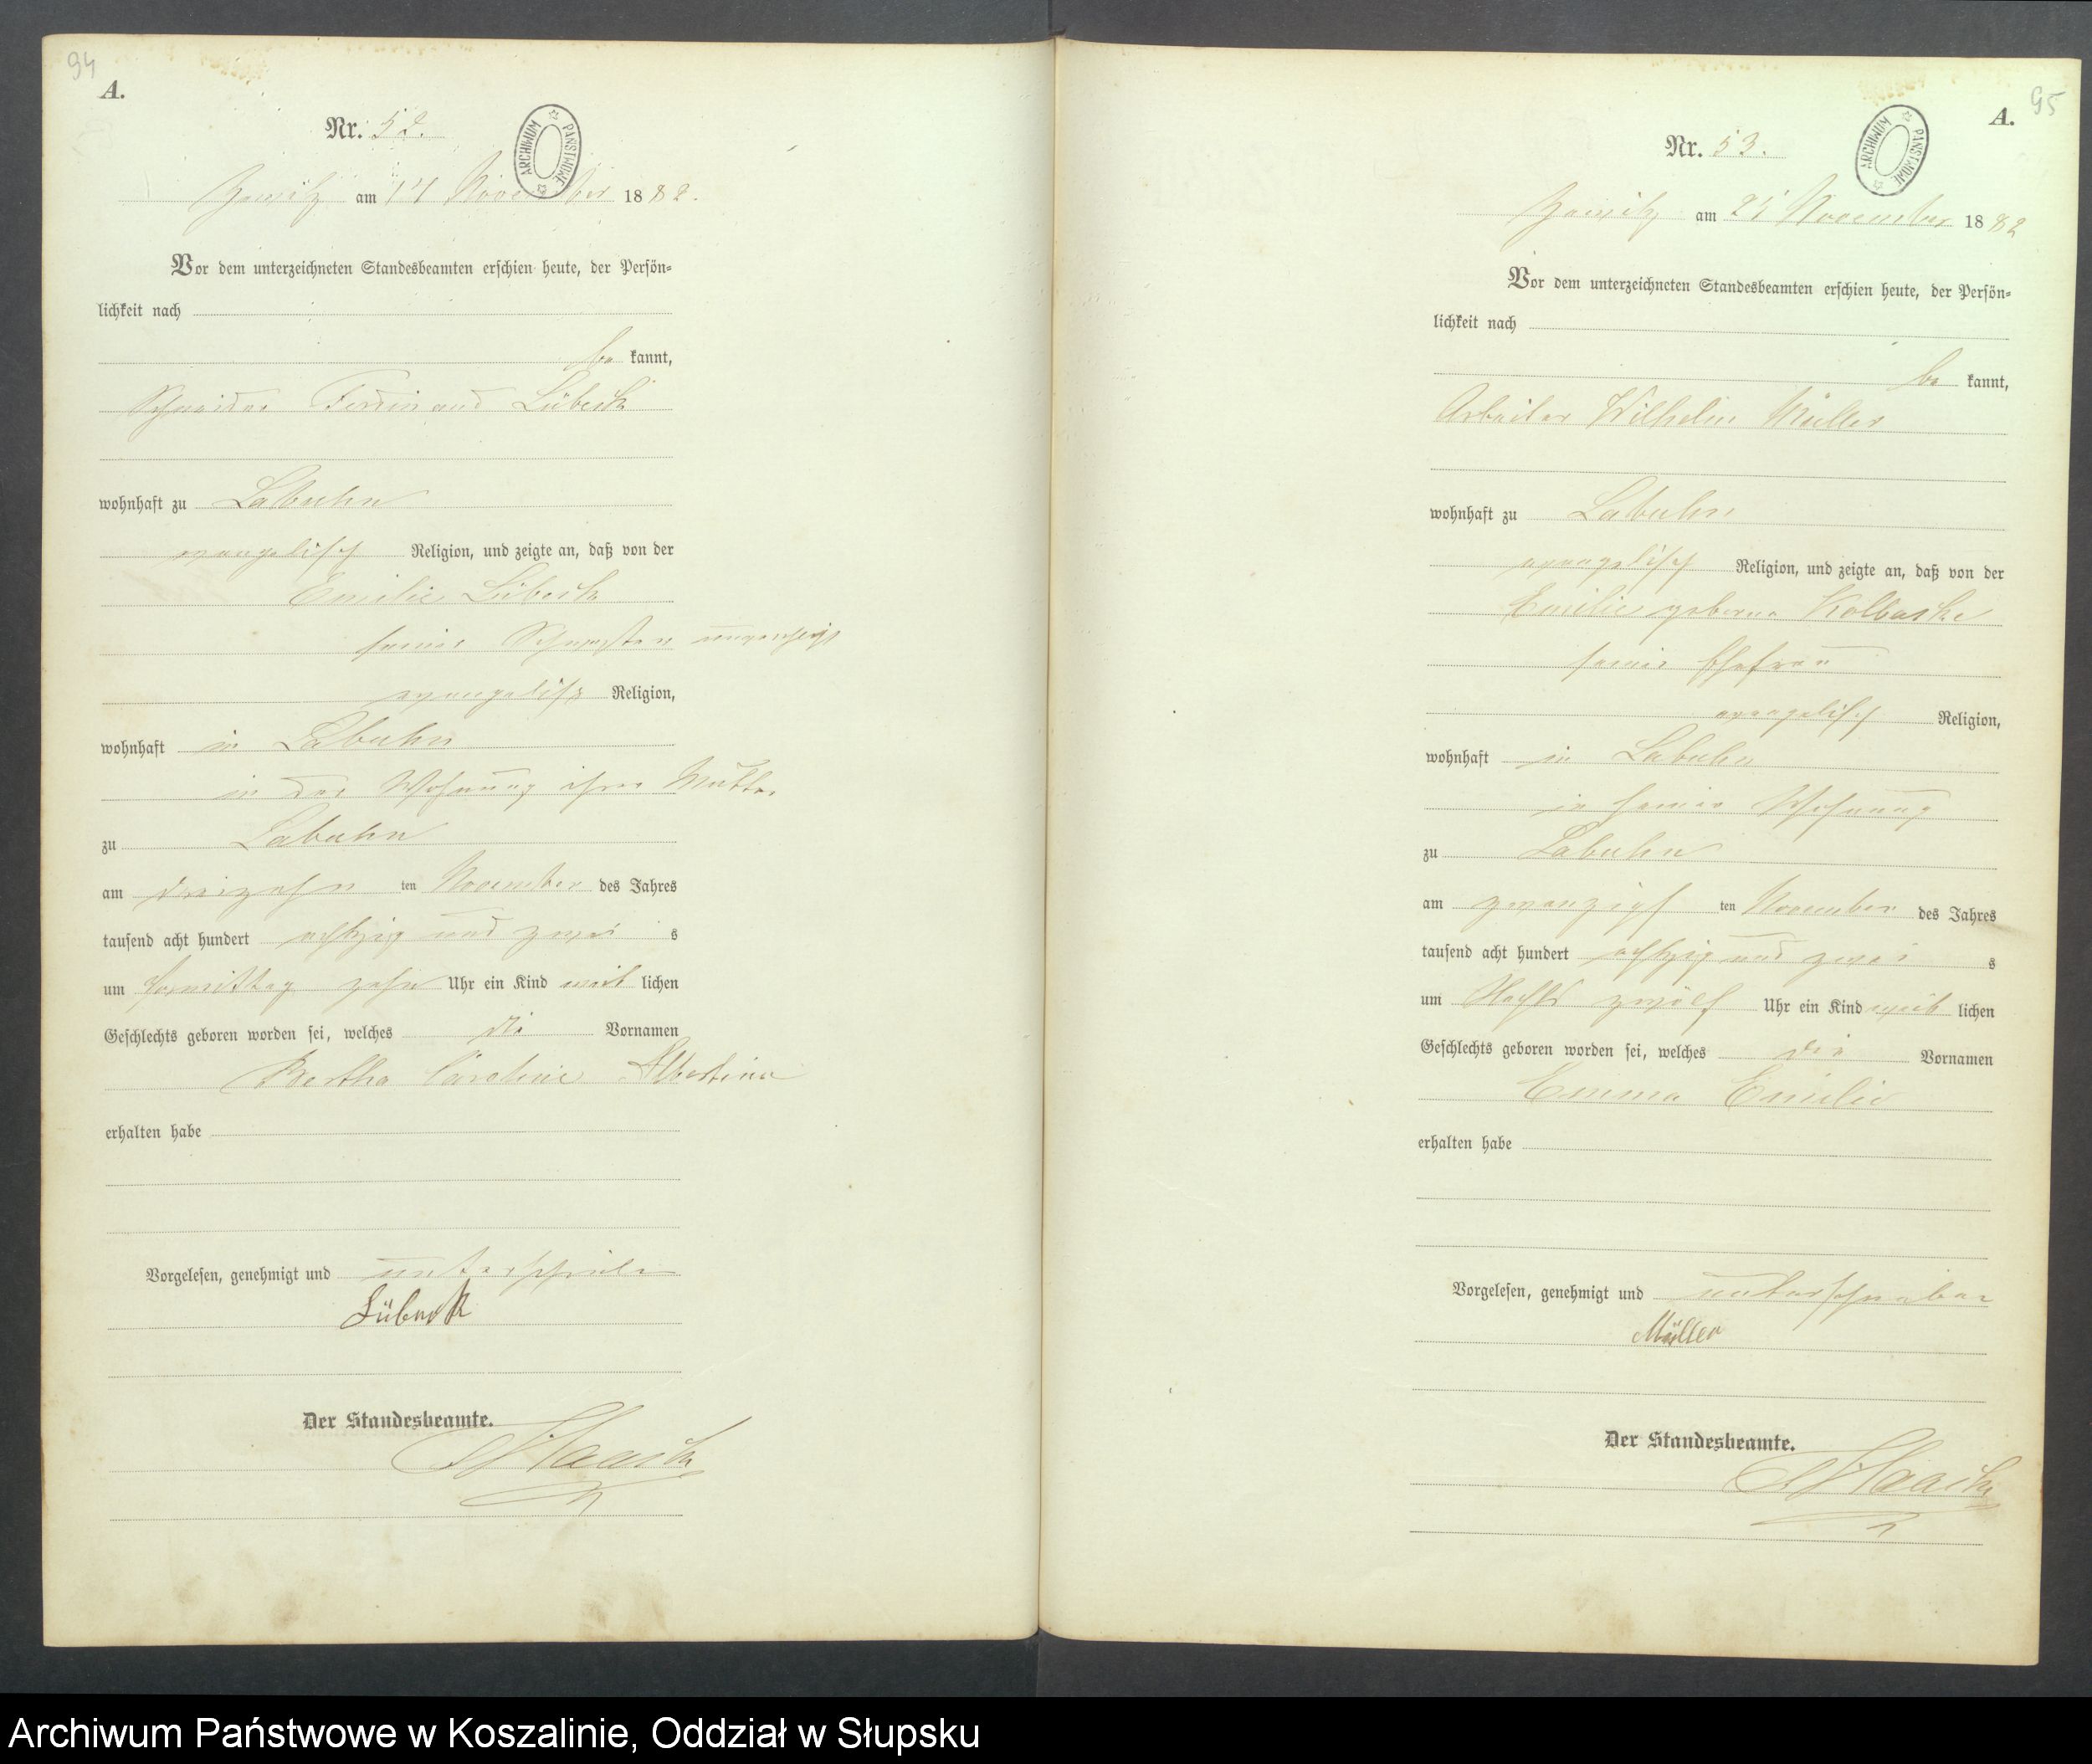 94
A.
Nr. 52.
ARCHIWUM PAŃSTWOWE
am 14 November 1882.
Vor dem unterzeichneten Standesbeamten erschien heute, der Persön-
lichkeit nach
be kannt,
Schneider Ferdinand Lübeck
wohnhaft zu Labuhn
evangelisch Religion, und zeigte an, daß von der
Emilie Lübeck
seiner Schwester
evangelisch Religion,
wohnhaft in Labuhn
in der Wohnung ihrer Mutter
zu Labuhn
am dreizehn ten November des Jahres
tausend acht hundert achtzig und zwei s
um Vormittag zehn Uhr ein Kind weib lichen
Geschlechts geboren worden sei, welches die Vornamen
Bertha Caroline Albertine
erhalten habe
Vorgelesen, genehmigt und
Lübeck
Der Standesbeamte.
95
A.
Nr. 53.
ARCHIWUM PAŃSTWOWE
am 21 November 1882
Vor dem unterzeichneten Standesbeamten erschien heute, der Persön-
lichkeit nach
be kannt,
Arbeiter Wilhelm Müller
wohnhaft zu Labuhn
evangelisch Religion, und zeigte an, daß von der
Emilie geborne Kolbaske
seiner Ehefrau
evangelisch Religion,
wohnhaft in Labuhn
in seiner Wohnung
zu Labuhn
am zwanzigs ten November des Jahres
tausend acht hundert achtzig und zwei s
um Nachts zwölf Uhr ein Kind weib lichen
Geschlechts geboren worden sei, welches die Vornamen
Emma Emilie
erhalten habe
Vorgelesen, genehmigt und unterschrieben
Müller
Der Standesbeamte.
Archiwum Państwowe w Koszalinie, Oddział w Słupsku